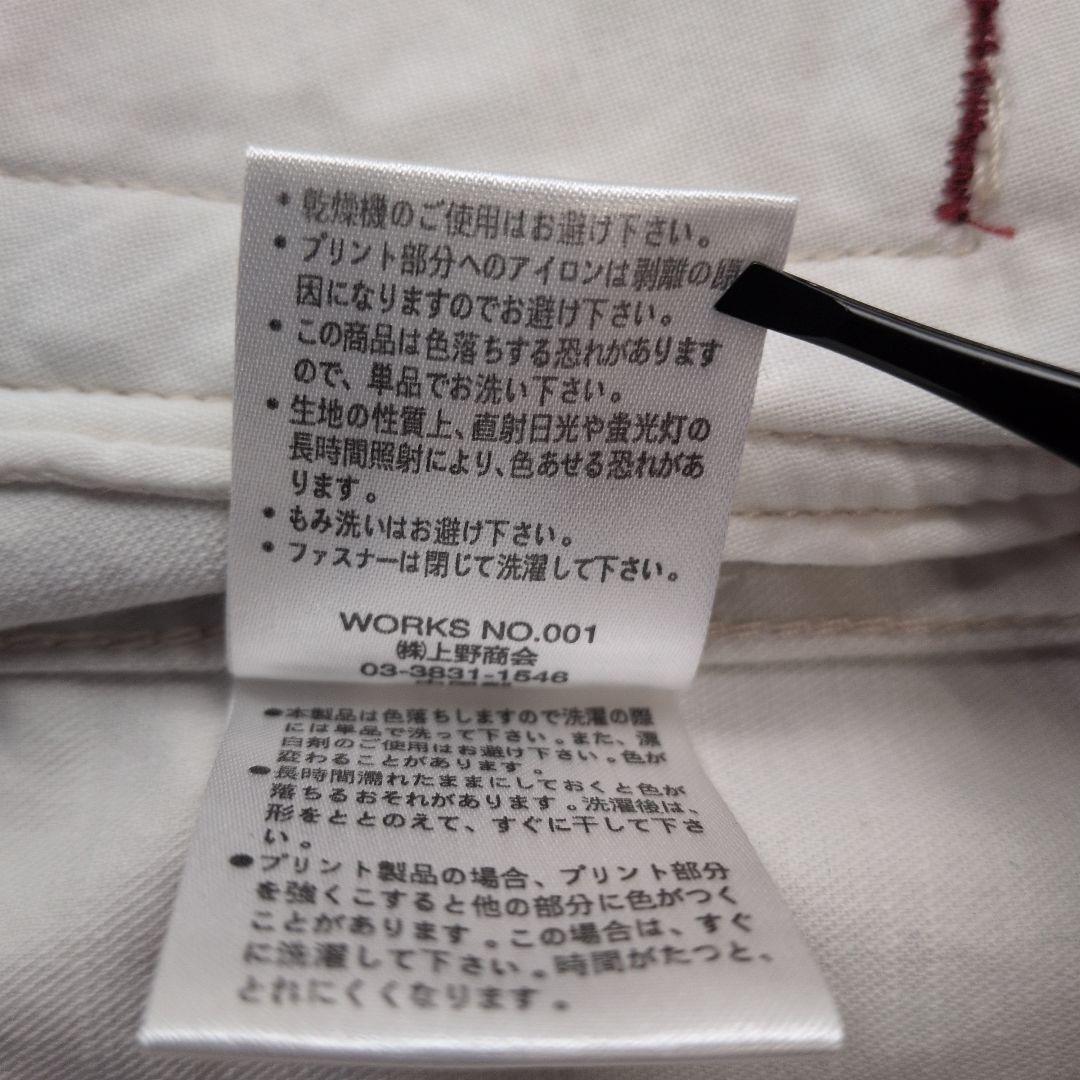 ・乾燥機のご使用はお避け下さい。
・プリント部分へのアイロンは剥離の
因になりますのでお避け下さい。
・この商品は色落ちする恐れがあります
ので、単品でお洗い下さい。
・生地の性質上、直射日光や蛍光灯の
長時間照射により、色あせる恐れがあ
ります。
・もみ洗いはお避け下さい。
・ファスナーは閉じて洗濯して下さい。
WORKS NO.001
㈱上野商会
03-3831-1546
●本製品は色落ちしますので洗濯の際
には単品で洗って下さい。また、漂
白剤のご使用はお避け下さい。色が
変わることがあります。
●長時間濡れたままにしておくと色が
落ちるおそれがあります。洗濯後は、
形をととのえて、すぐに干して下さ
い。
●プリント製品の場合、プリント部分
を強くこすると他の部分に色がつく
ことがあります。この場合は、すぐ
に洗濯して下さい。時間がたつと、
とれにくくなります。